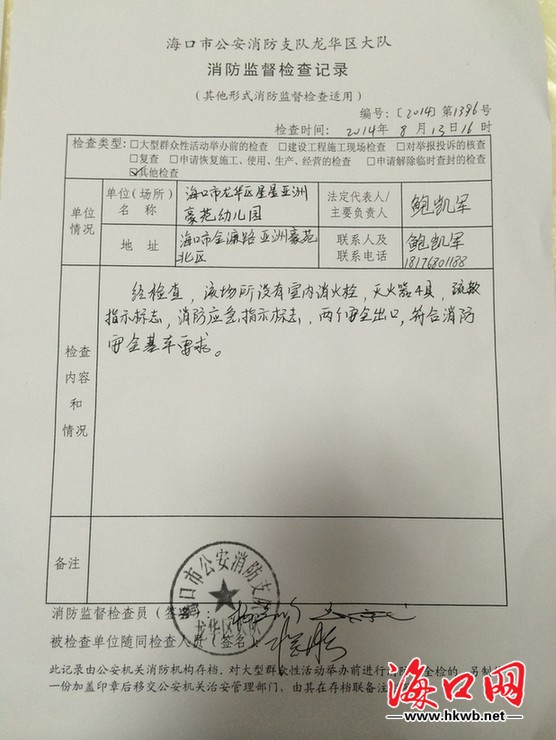 海口市公安消防支队龙华区大队
消防监督检查记录
（其他形式消防监督检查适用）
编号：〔2014〕第1396号
检查时间：2014年8月13日16时
检查类型：□大型群众性活动举办前的检查 □建设工程施工现场检查 □对举报投诉的核查
□复查 □申请恢复施工、使用、生产、经营的检查 □申请解除临时查封的检查
☑其他检查
单位情况
单位(场所)名称
海口市龙华区星星亚洲
豪苑幼儿园
法定代表人/
主要负责人
鲍凯军
地址
海口市金濂路亚洲豪苑
北区
联系人及
联系电话
鲍凯军
18176801188
检查内容和情况
经检查，该场所设有室内消火栓，灭火器4具，疏散
指示标志，消防应急指示标志，两个安全出口，符合消防
安全基本要求。
备注
海口市公安消防支队
龙华区大队
消防监督检查员（签名）：
被检查单位随同检查人员（签名）：
此记录由公安机关消防机构存档。对大型群众性活动举办前进行消防安全检的，另制
一份加盖印章后移交公安机关治安管理部门，由其在存档联备注
海口网
www.hkwb.net